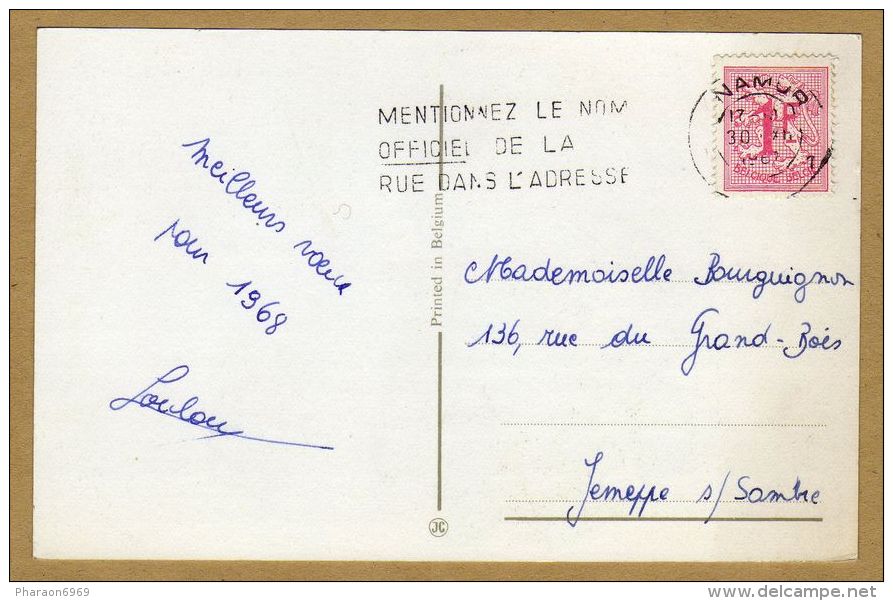 MENTIONNEZ LE NOM
OFFICIEL DE LA
RUE DANS L'ADRESSE
NAMUR
30
1F
BELGIQUE BELGIË
Meilleurs vœux
pour 1968
Loulou
Printed in Belgium
JC
Mademoiselle Bourguignon
136, rue du Grand-Bois
Jemeppe s/Sambre
Pharaon6969
delcampe.net